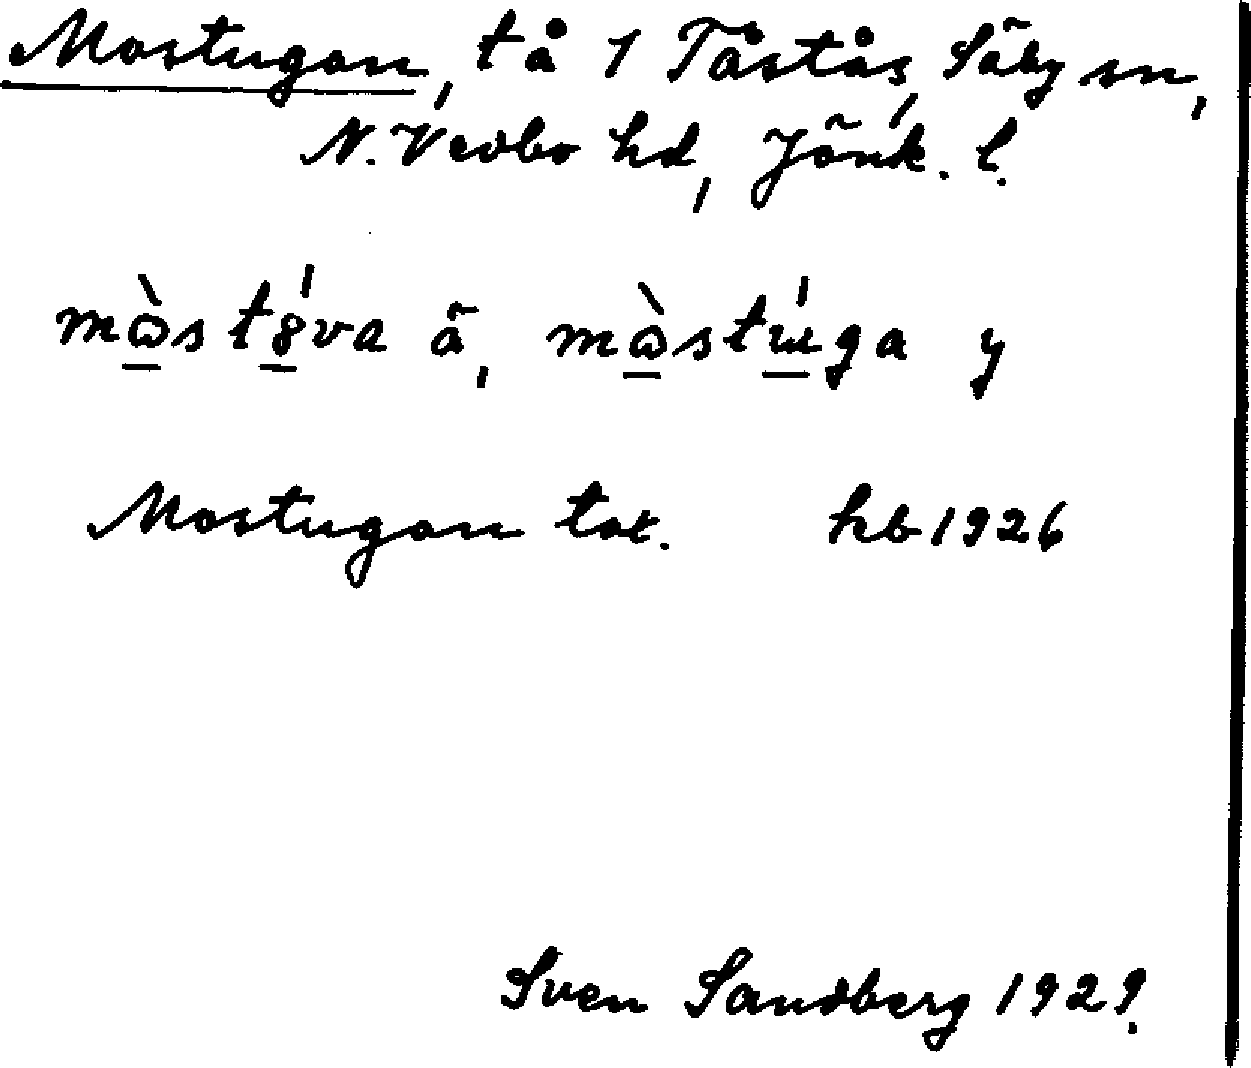 Mostugan, tå 1 Tåstås, Säby sn,
N. Vedbo hd, Jönk. l.
mɷ̀st8́va ä, mɷ̀stɯ́ga y
Mostugan tot. hb 1926
Sven Sandberg 1929.